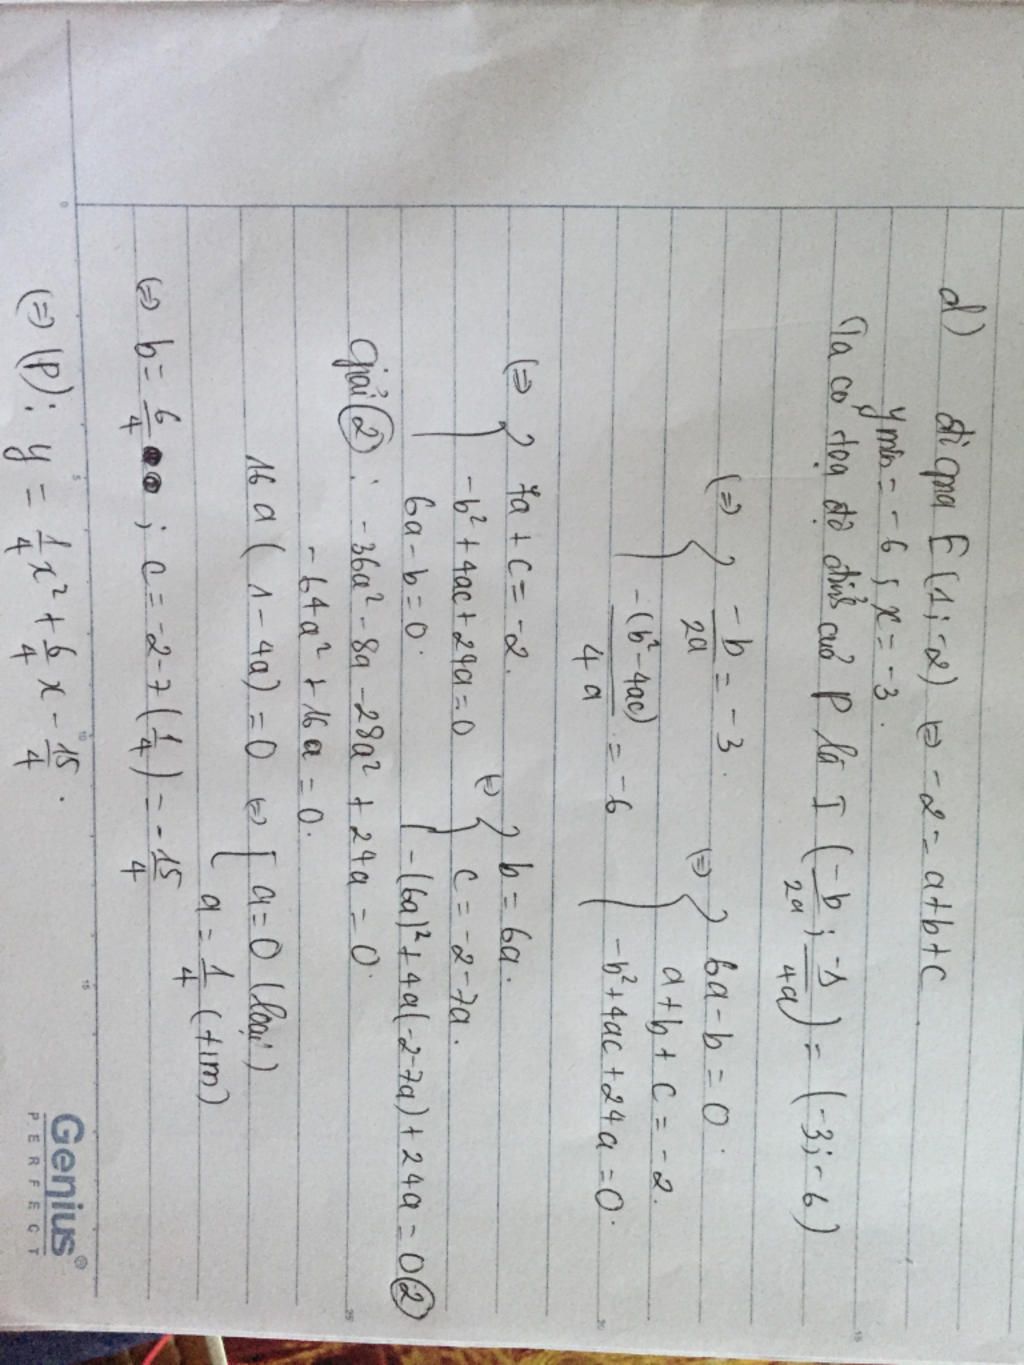 d) đi qua E(1;-2) ⇔ -2 = a+b+c
ymin = -6 ; x = -3.
Ta có toạ độ đỉnh của P là I (-b/2a ; -Δ/4a) = (-3;-6)
(=) { -b/2a = -3. (=) { 6a - b = 0.
-(b²-4ac)/4a = -6 a + b + c = -2.
-b²+4ac+24a = 0.
(=) { 7a + c = -2. (=) { b = 6a.
-b²+4ac+24a = 0 c = -2-7a.
6a - b = 0. -(6a)²+4a(-2-7a)+24a = 0 (2)
Giải (2) : -36a² - 8a - 28a² + 24a = 0.
-64a² + 16a = 0.
16a ( 1 - 4a) = 0 ⇔ [ a = 0 (loại)
a = 1/4 (+m)
(=) b = 6/4 ; c = -2-7(1/4) = -15/4
(=) (P) : y = 1/4 x² + 6/4 x - 15/4 .
Genius®
PERFECT
0
5
10
15